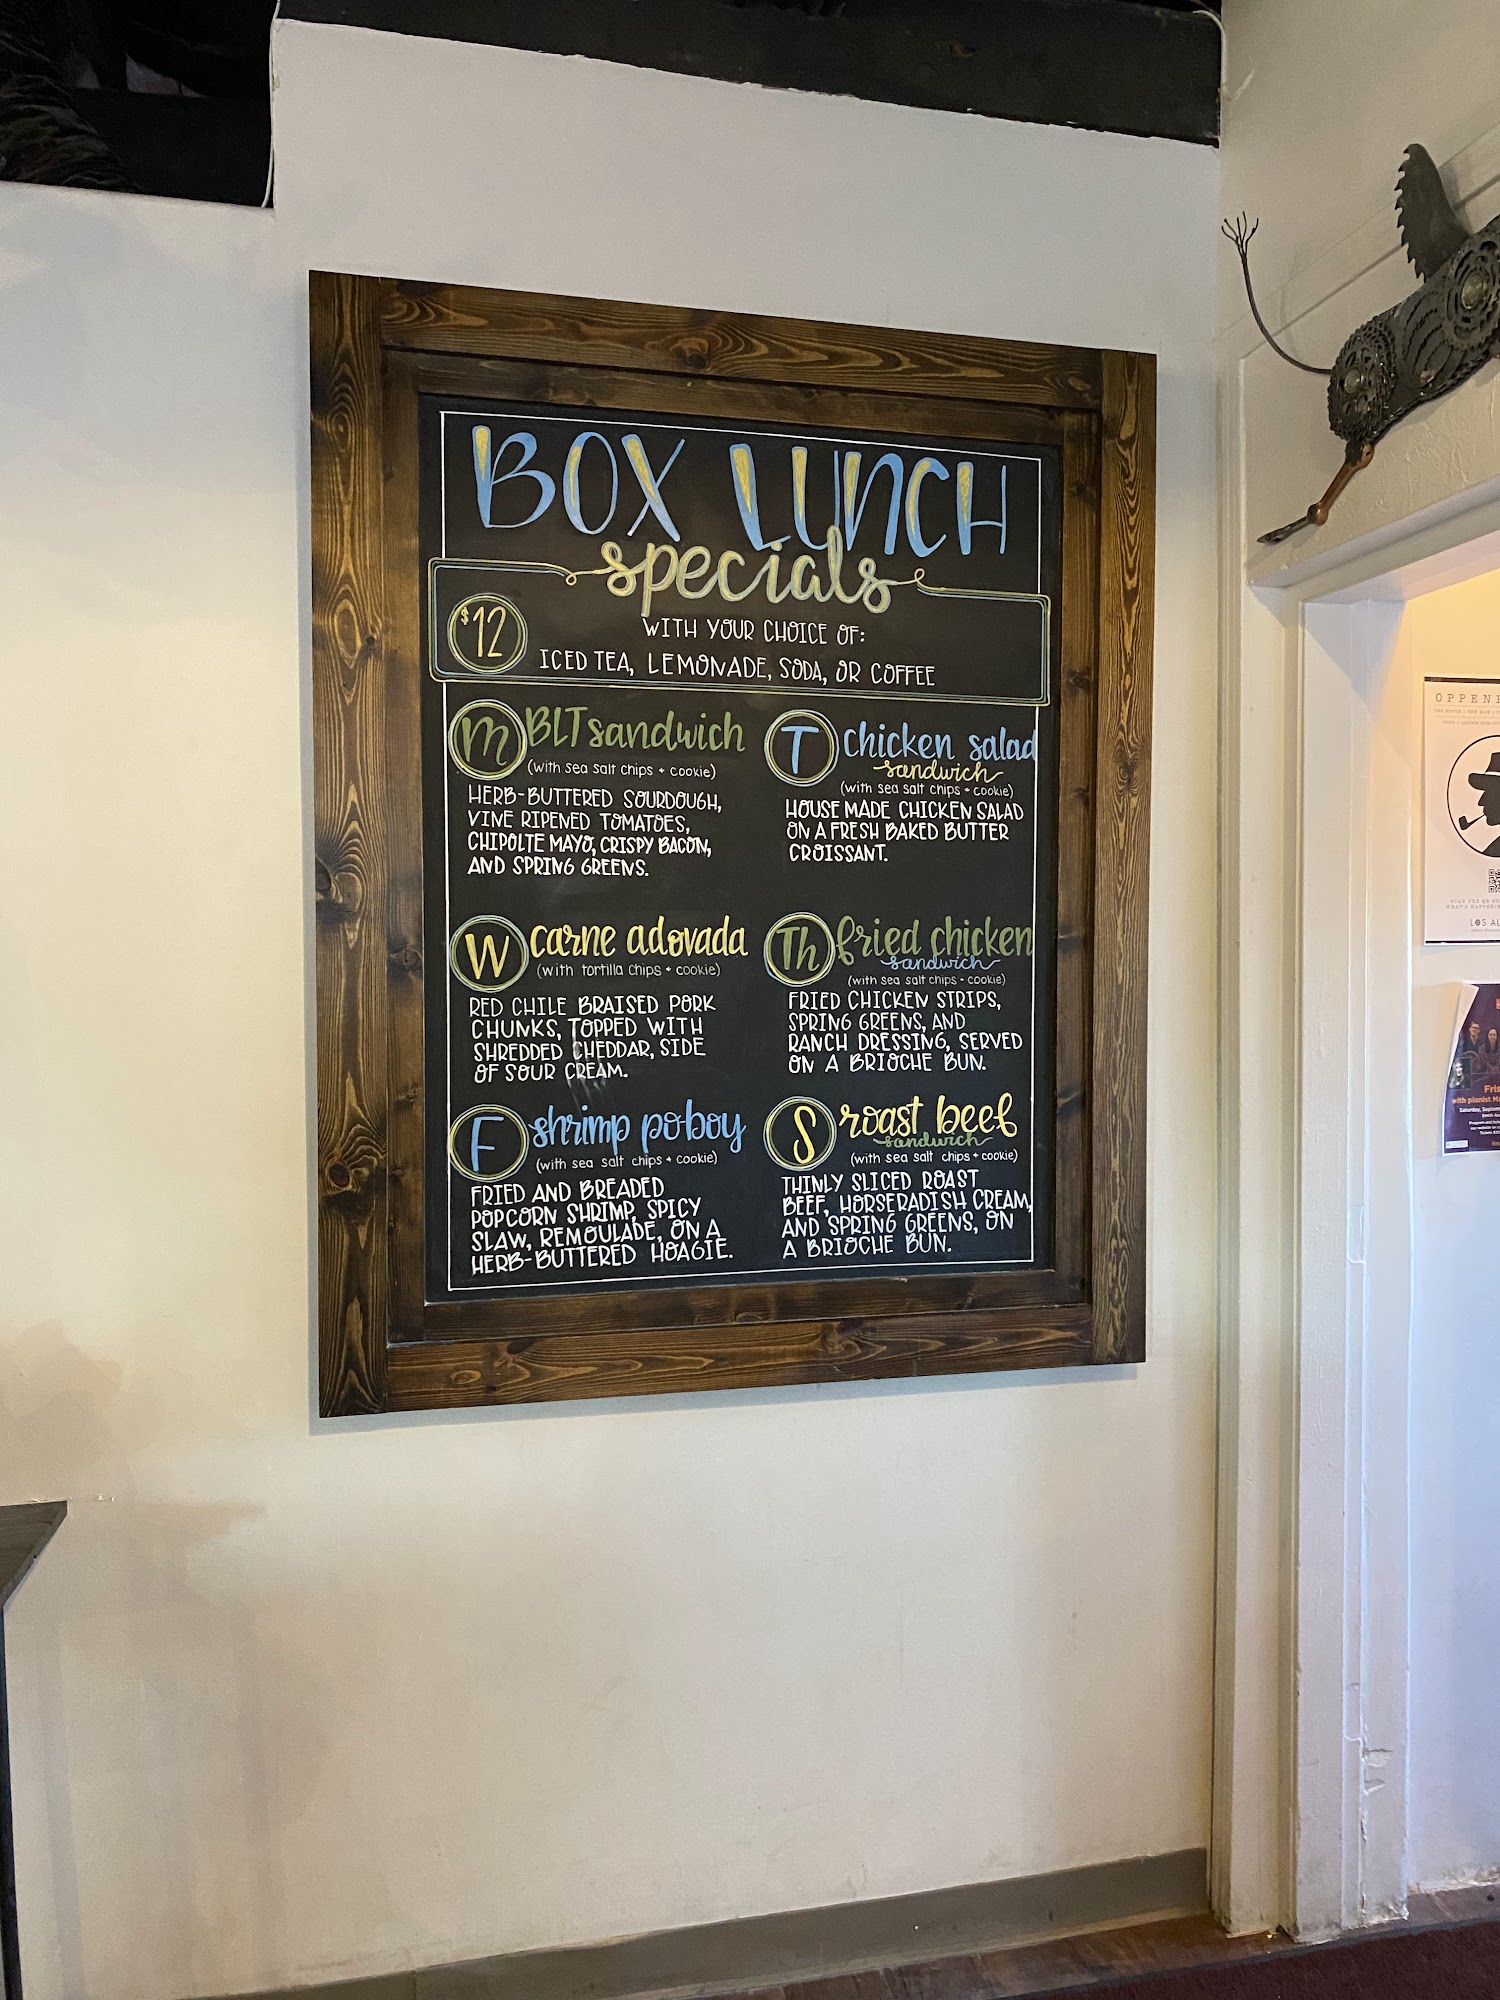 BOX LUNCH
specials
$12
WITH YOUR CHOICE OF:
ICED TEA, LEMONADE, SODA, OR COFFEE
M BLT sandwich
(with sea salt chips + cookie)
HERB-BUTTERED SOURDOUGH,
VINE RIPENED TOMATOES,
CHIPOLTE MAYO, CRISPY BACON,
AND SPRING GREENS.
T chicken salad
sandwich
(with sea salt chips + cookie)
HOUSE MADE CHICKEN SALAD
ON A FRESH BAKED BUTTER
CROISSANT.
W carne adovada
(with tortilla chips + cookie)
RED CHILE BRAISED PORK
CHUNKS, TOPPED WITH
SHREDDED CHEDDAR, SIDE
OF SOUR CREAM.
Th fried chicken
sandwich
(with sea salt chips + cookie)
FRIED CHICKEN STRIPS,
SPRING GREENS, AND
RANCH DRESSING, SERVED
ON A BRIOCHE BUN.
F shrimp po·boy
(with sea salt chips + cookie)
FRIED AND BREADED
POPCORN SHRIMP, SPICY
SLAW, REMOULADE, ON A
HERB-BUTTERED HOAGIE.
S roast beef
sandwich
(with sea salt chips + cookie)
THINLY SLICED ROAST
BEEF, HORSERADISH CREAM,
AND SPRING GREENS, ON
A BRIOCHE BUN.
OPPEN
LOS AL
Fris
with pianist Ma